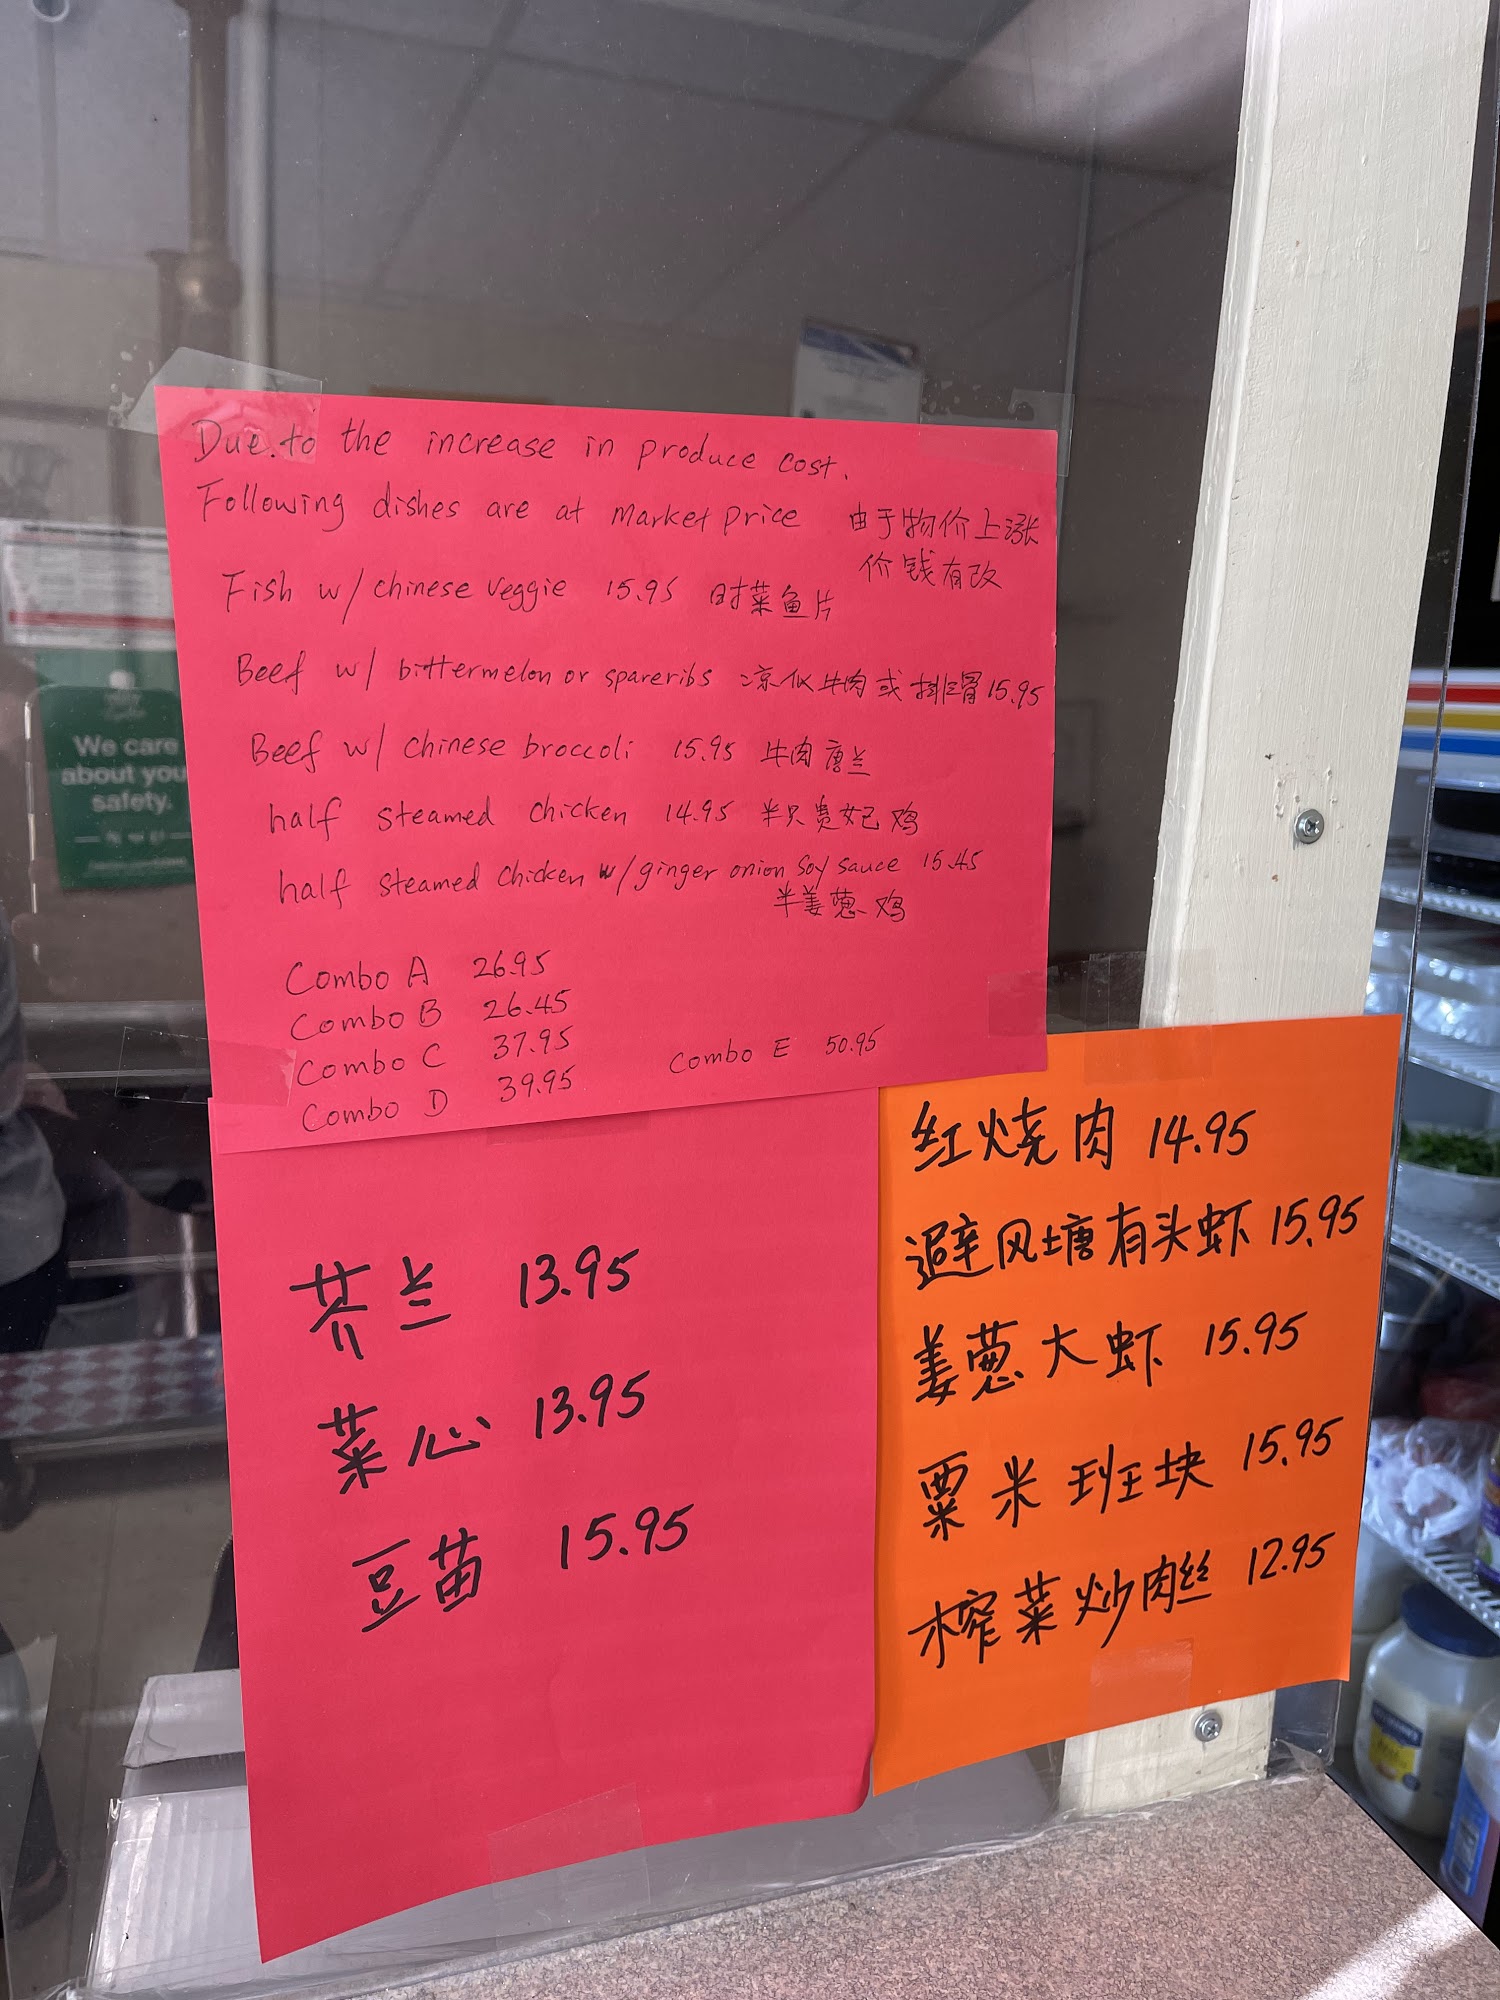 Due to the increase in produce cost.
Following dishes are at market price 由于物价上涨
价钱有改
Fish w/ chinese veggie 15.95 时菜鱼片
Beef w/ bittermelon or spareribs 凉瓜牛肉或排骨 15.95
Beef w/ chinese broccoli 15.95 牛肉唐兰
half steamed chicken 14.95 半只贵妃鸡
half steamed chicken w/ginger onion soy sauce 15.45
半姜葱鸡
Combo A 26.95
Combo B 26.45
Combo C 37.95
Combo D 39.95
Combo E 50.95
芥兰 13.95
菜心 13.95
豆苗 15.95
红烧肉 14.95
避风塘有头虾 15.95
姜葱大虾 15.95
粟米班块 15.95
榨菜炒肉丝 12.95
We care
about you
safety.